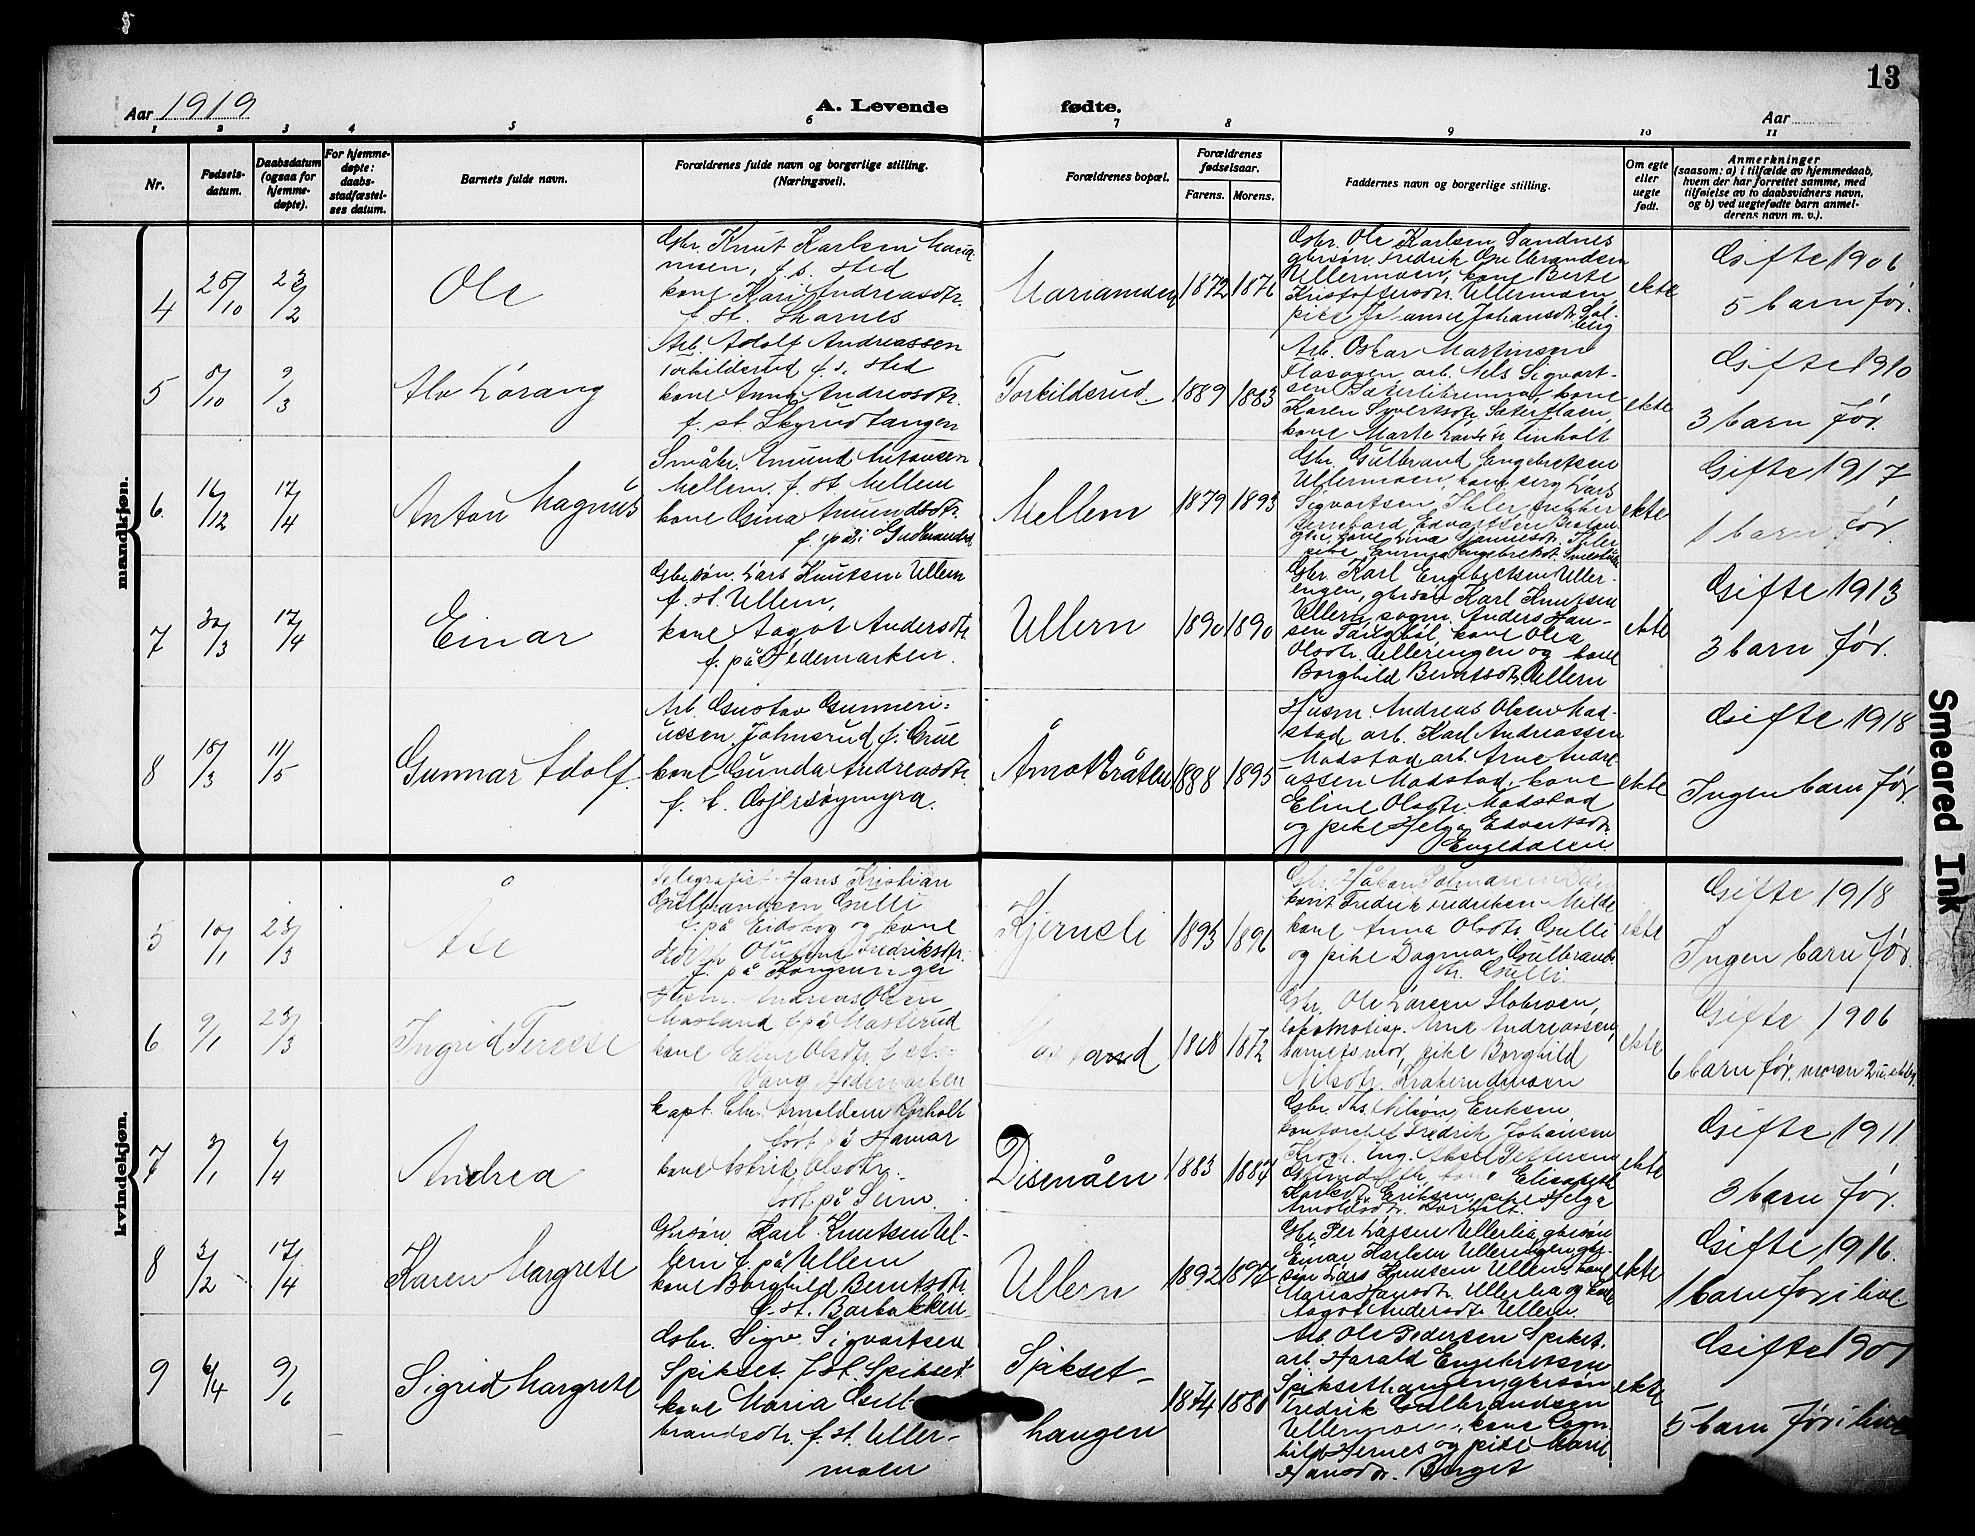 13
Aar 1919
A. Levende fødte.
Aar
1 2 3 4 5 6 7 8 9 10 11
Nr.
Fødsels-
datum.
Daabsdatum
(ogsaa for
hjemme-
døpte).
For hjemme-
døpte:
daabs-
stadfæstel-
ses datum.
Barnets fulde navn.
Forældrenes fulde navn og borgerlige stilling.
(Næringsvei).
Forældrenes bopæl.
Forældrenes
fødselsaar.
Farens. Morens.
Faddernes navn og borgerlige stilling.
Om egte
eller
uegte
født.
Anmerkninger
(saasom: a) i tilfælde av hjemmedaab,
hvem der har forrettet samme, med
tilføielse av to daabsvidners navn,
og b) ved uegtefødte barn anmel-
derens navn m. v.).
mandkjøn.
4
28/10
23/2
Ole
Gbr. Knut Karlsen
f. s. sted
kone Kari Andreasdtr.
f. st. Skarnes
1872 1876
Gbr. Ole Karlsen Sandnes
gbrsøn Fredrik Gulbrandsen
Ullermoen, kone Berte
Kristoffersdtr. Ullermoen,
pike Johansdtr. Sol-
berg
ekte
Gifte 1906
5 barn før.
5
8/10
9/3
Alv Lorang
Arb. Adolf Andreassen
Torkildsrud f. s. sted
kone Anna Andreasdtr.
f. st. Skyrudtangen
Torkildsrud
1889 1883
Arb. Oskar Martinsen
arb. Nils Sigvart-
sen kone
Karen Syvertsdtr. Sæterflaen
kone Marte Larsdtr. Finholt
ekte
Gifte 1910
3 barn før.
6
16/12
17/4
Anton Magnus
Småbr. Amund Antonsen
Mellem. f. st. Mellem
kone Gina Amundsdtr.
f. på i Gudbrandsd.
Mellem
1879 1893
Gbr. Gulbrand Engebretsen
Ullermoen, kone serg. Lars
Sigvartsen Ihler
Edvartsen
kone Lina Ihler
pike Emma Engebretsdt.
ekte
Gifte 1917
1 barn før.
7
30/3
17/4
Einar
Gbr.søn. Lars Knutsen Ullern
f. st. Ullern,
kone Aagot Andersdtr.
f. på Hedemarken.
Ullern
1890 1890
Gbr. Karl Engebretsen Uller-
engen, gbrsøn Karl Knutsen
Ullern, sogn. Anders Han-
sen kone Olea
Olsdtr. Ullerengen og kone
Borghild Berntsdtr. Ullern
ekte
Gifte 1913
3 barn før.
8
18/3
11/5
Gunnar Adolf.
Arb. Gustav Gunneri-
ussen Johnsrud f. i Grue
kone Gunda Andreasdtr.
f. i.
Årnotbråten
1888 1895
Husm. Andreas Olsen Mad-
stad arb. Karl Andreassen
Madstad, arb. Arne Andre-
assen Madstad, kone
Eline Olsdtr. Madstad
og pike Helga Edvartsdtr.
Engedalen
ekte
Gifte 1918
Ingen barn før.
kvindekjøn.
5
10/1
23/3
Åse
Telegrafist Hans Kristian
Gulbrandsen Gulli
f. på Eidskog og kone
Fredriksdtr.
f. på Kongsvinger
Kjernsli
1895 1896
Gbr. Håkon
kont. Fredrik Fredriksen Milde
kone Anna Olsdtr. Gulli
og pike Dagmar Gulbrands-
dtr. Gulli
ekte
Gifte 1918
Ingen barn før.
6
9/1
23/3
Ingrid Terese
Husm. Andreas Olsen
Masland f. på Masterud
kone Eline Olsdtr. f. st.
Vang Hedemarken
1868 1872
Gbr. Ole Larsen
lokomotivp. Arne Andreassen,
barnets mor, pike Borghild
Nilsdtr.
ekte
Gifte 1906
6 barn før.
7
3/1
6/4
Andrea
Kapt. Chr. Arneldem Korholt
født på Hamar
kone Astrid Olsdtr.
født på Seim.
Disenåen
1883 1887
Gbr. Ths. Nilsøn Eriksen,
kontorchef Fredrik Johansen
Krogh. ing. Aksel Pettersen
Elisabeth
Eriksen, pike Helga
Arnoldsdtr. Korholt.
ekte
Gifte 1911
3 barn før.
8
3/2
17/4
Karen Margrete
Gbrsøn. Karl Knutsen Ul-
lern f. på Ullern
kone Borghild Berntsdtr.
f. st. Barbakken
Ullern
1892 1897
Gbr. Per Larsen Ullerlia, gbrsøn
Einar Karlsen Ullerengen, gbr.-
søn Lars Knutsen Ullern, kone
Maria Hansdtr. Ullerlia og kone
Aagot Andersdtr. Ullern.
ekte
Gifte 1916.
1 barn før i live
9
6/4
9/6
Sigrid Margrete
Gbr. Sigv. Sigvartsen
Spikset. f. st. Spikset
kone Maria Gul-
brandsdtr. f. st. Uller-
moen
Spikset-
haugen
1874 1880
Arb. Ole Pedersen Spikset,
arb. Harald Engebretsen
Spiksethaugen, gbrsøn
Fredrik Gulbrandsen
Ullermoen, kone Ragn-
hild Hernes og pike Marie
Hansdtr. Berget
ekte
Gifte 1907
5 barn før i live
Smeared Ink